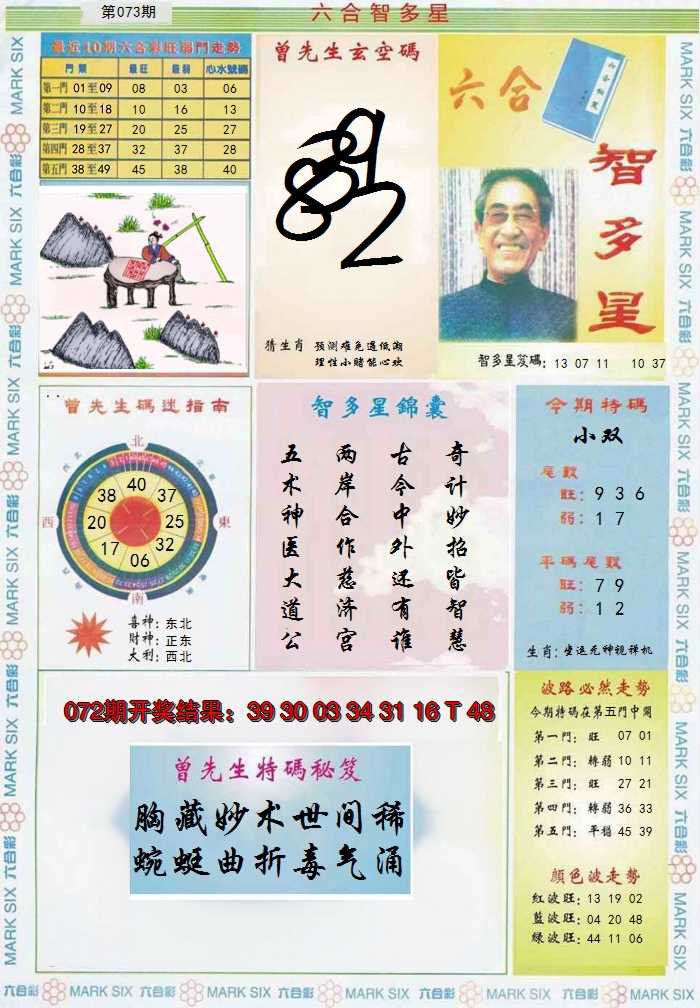 第073期
六合智多星
最近10期六合彩旺弱門走勢
門類 最旺 最弱 心水號碼
第一門 01至09 08 03 06
第二門 10至18 10 16 13
第三門 19至27 20 25 27
第四門 28至37 32 37 28
第五門 38至49 45 38 40
曾先生玄空碼
猜生肖 预测难免遇低潮
理性小賭能心欢
六合
智多星
智多星笈碼: 13 07 11 10 37
曾先生碼迷指南
北
西
東
南
38 40 37
20 25
17 06 32
喜神: 东北
财神: 正东
大利: 西北
智多星錦囊
奇计妙招皆智慧
古今中外还有谁
两岸合作慈济宫
五术神医大道公
今期特碼
小双
尾數
旺: 9 3 6
弱: 1 7
平碼尾數
旺: 7 9
弱: 1 2
生肖: 坐运元神视禅机
072期开奖结果：39 30 03 34 31 16 T 48
曾先生特碼秘笈
胸藏妙术世间稀
蜿蜒曲折毒气涌
波路必然走勢
今期特碼在第五門中開
第一門: 旺 07 01
第二門: 轉弱 10 11
第三門: 旺 27 21
第四門: 轉弱 36 33
第五門: 平穩 45 39
顏色波走勢
紅波旺: 13 19 02
藍波旺: 04 20 48
綠波旺: 44 11 06
六合彩 MARK SIX 六合彩 MARK SIX 六合彩 MARK SIX 六合彩 MARK SIX 六合彩 MARK SIX